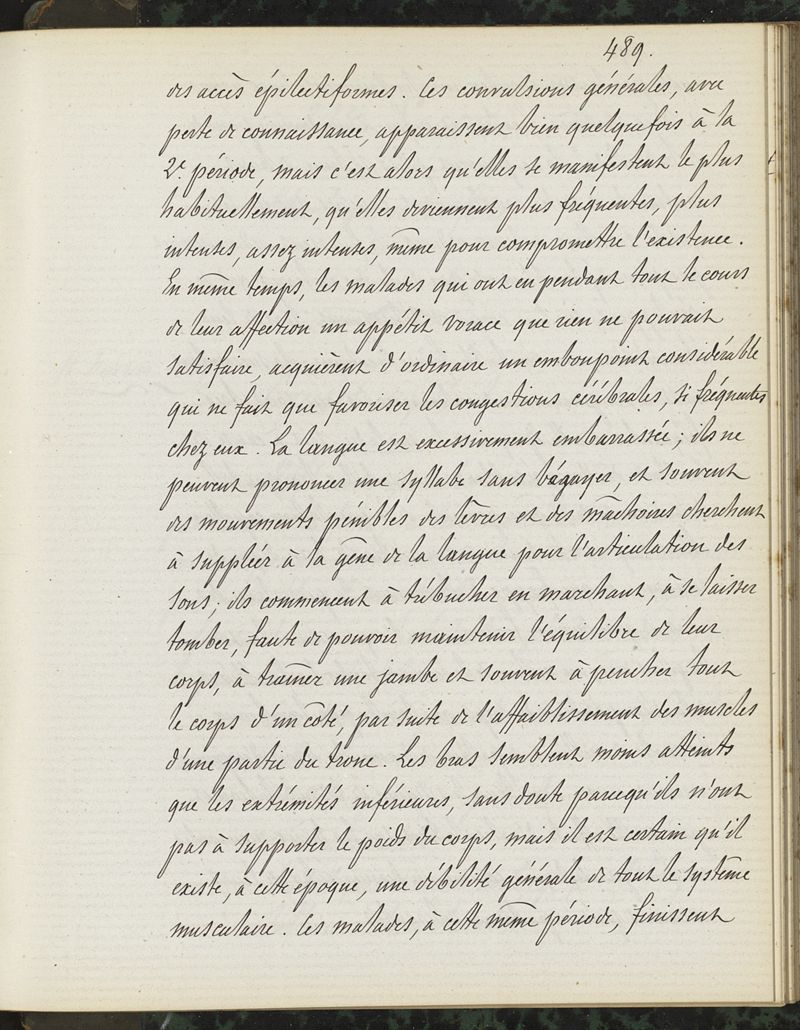 489.
des accès épilectiformes. Ces convulsions générales, avec
perte de connaissance, apparaissent bien quelquefois à la
2e période, mais c'est alors qu'elles se manifestent le plus
habituellement, qu'elles deviennent plus fréquentes, plus
intenses, assez intenses, même pour compromettre l'existence.
En même temps, les malades qui ont eu pendant tout le cours
de leur affection un appétit vorace que rien ne pouvait
satisfaire, acquièrent d'ordinaire un embonpoint considérable
qui ne fait que favoriser les congestions cérébrales, si fréquentes
chez eux. La langue est excessivement embarrassée; ils ne
peuvent prononcer une syllabe sans bégayer, et souvent
des mouvements pénibles des lèvres et des mâchoires cherchent
à suppléer à la gêne de la langue pour l'articulation des
sons; ils commencent à trébucher en marchant, à se laisser
tomber, faute de pouvoir maintenir l'équilibre de leur
corps, à traîner une jambe et souvent à pencher tout
le corps d'un côté, par suite de l'affaiblissement des muscles
d'une partie du tronc. Les bras semblent moins atteints
que les extrémités inférieures, sans doute parcequ'ils n'ont
pas à supporter le poids du corps, mais il est certain qu'il
existe, à cette époque, une débilité générale de tout le système
musculaire. Ces malades, à cette même période, finissent